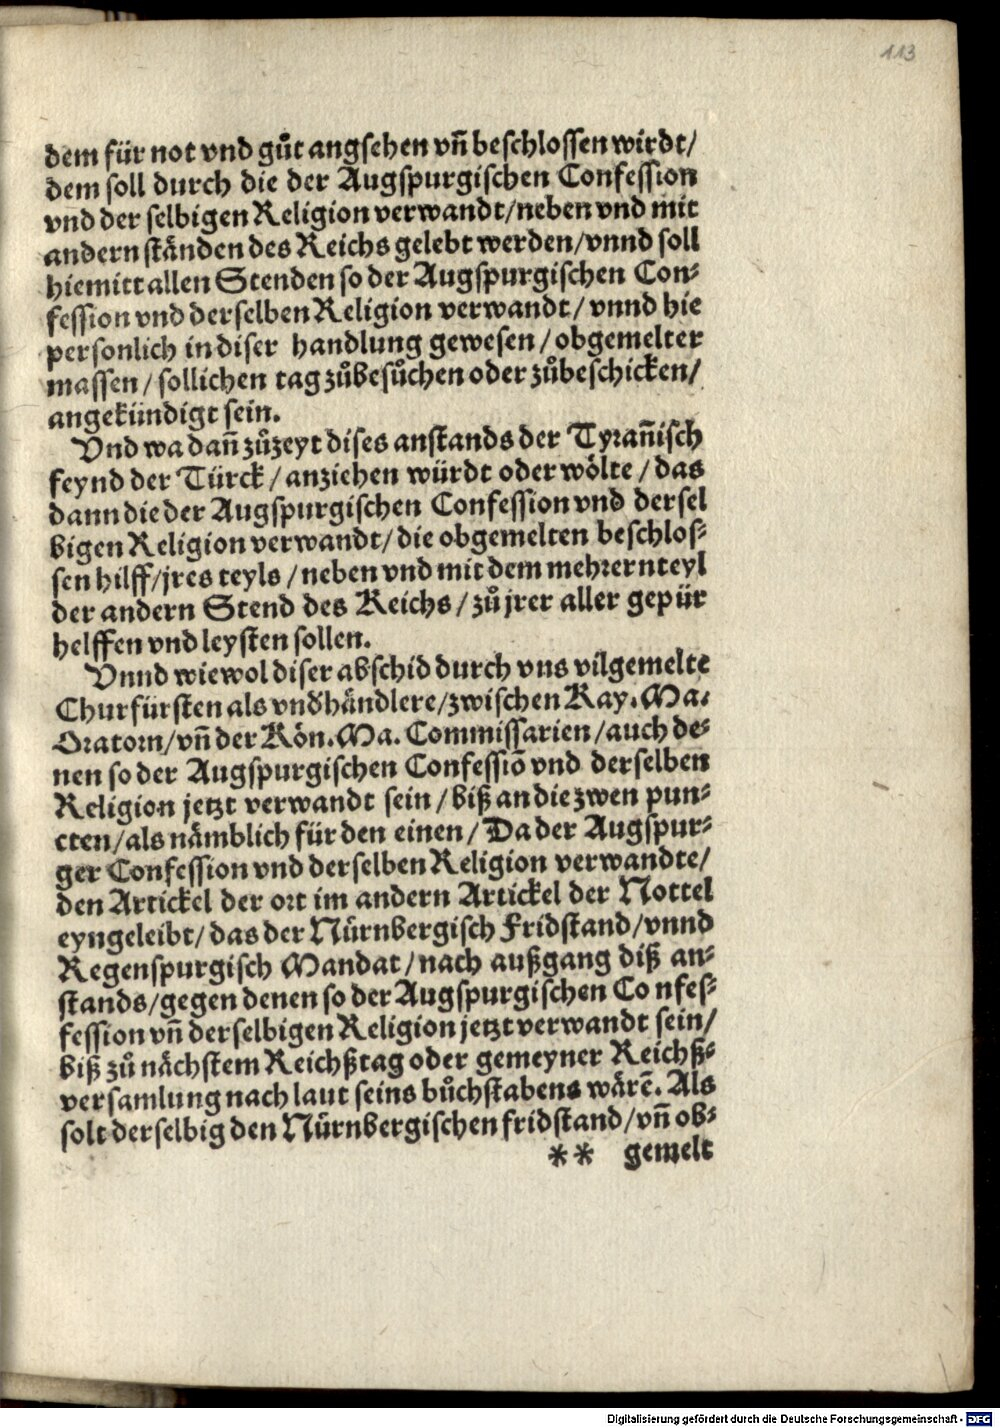 113
dem für not vnd gůt angsehen vñ beschlossen wirdt/
dem soll durch die der Augspurgischen Confession
vnd der selbigen Religion verwandt/neben vnd mit
andern ständen des Reichs gelebt werden/vnnd soll
hiemitt allen Stenden so der Augspurgischen Con-
fession vnd derselben Religion verwandt/ vnnd hie
personlich in diser handlung gewesen/ obgemelter
massen/ sollichen tag zůbesůchen oder zůbeschicken/
angekündigt sein.
Vnd wa dañ zůzeyt dises anstands der Tyrañisch
feynd der Türck/ anziehen würdt oder wölte/ das
dann die der Augspurgischen Confession vnd dersel
bigen Religion verwandt/ die obgemelten beschlos-
sen hilff/jres teyls/ neben vnd mit dem mehrern teyl
der andern Stend des Reichs/ zů jrer aller gepür
helffen vnd leysten sollen.
Vnnd wiewol diser abschid durch vns vilgemelte
Churfürsten als vndhändlere/zwischen Kay. Ma.
Oratorn/vñ der Kön. Ma. Commissarien/auch de-
nen so der Augspurgischen Confessiō vnd derselben
Religion jetzt verwandt sein/ biß an die zwen pun-
cten/als nämblich für den einen/ Da der Augspur-
ger Confession vnd derselben Religion verwandte/
den Artickel der ort im andern Artickel der Nottel
eyngeleibt/ das der Nürnbergisch Fridstand/vnnd
Regenspurgisch Mandat/nach außgang diß an-
stands/gegen denen so der Augspurgischen Co nfes-
fession vñ derselbigen Religion jetzt verwandt sein/
biß zů nächstem Reichßtag oder gemeyner Reichß-
versamlung nach laut seins bůchstabens wärē. Als
solt derselbig den Nürnbergischen fridstand/vñ ob-
** gemelt
Digitalisierung gefördert durch die Deutsche Forschungsgemeinschaft - DFG